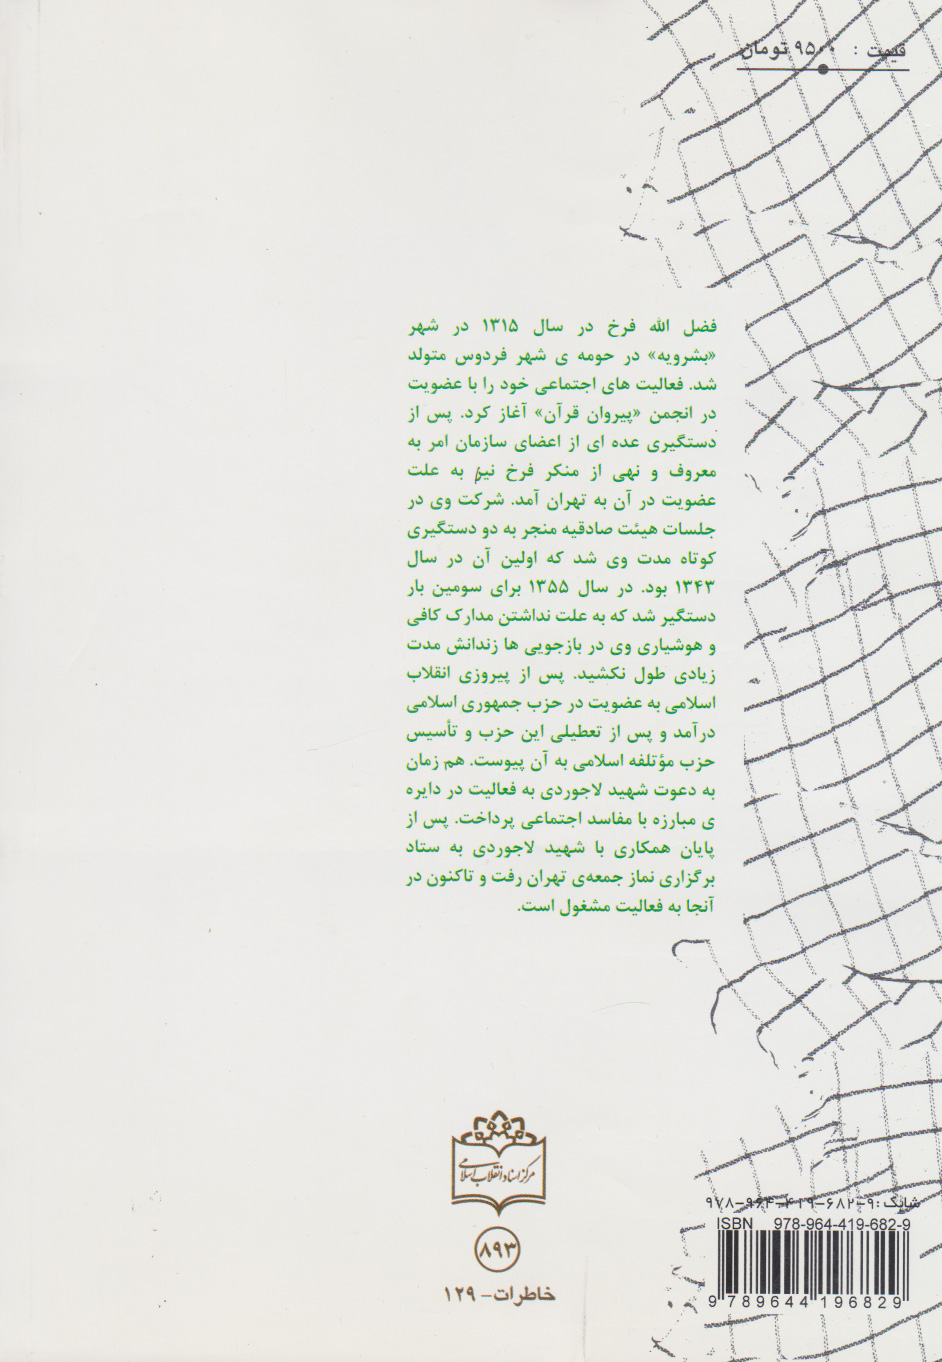 قیمت : ۹۵۰۰ تومان
فضل الله فرخ در سال ۱۳۱۵ در شهر
«بشرویه» در حومه ی شهر فردوس متولد
شد. فعالیت های اجتماعی خود را با عضویت
در انجمن «پیروان قرآن» آغاز کرد. پس از
دستگیری عده ای از اعضای سازمان امر به
معروف و نهی از منکر فرخ نیز به علت
عضویت در آن به تهران آمد. شرکت وی در
جلسات هیئت صادقیه منجر به دو دستگیری
کوتاه مدت وی شد که اولین آن در سال
۱۳۴۳ بود. در سال ۱۳۵۵ برای سومین بار
دستگیر شد که به علت نداشتن مدارک کافی
و هوشیاری وی در بازجویی ها زندانش مدت
زیادی طول نکشید. پس از پیروزی انقلاب
اسلامی به عضویت در حزب جمهوری اسلامی
درآمد و پس از تعطیلی این حزب و تأسیس
حزب مؤتلفه اسلامی به آن پیوست. هم زمان
به دعوت شهید لاجوردی به فعالیت در دایره
ی مبارزه با مفاسد اجتماعی پرداخت. پس از
پایان همکاری با شهید لاجوردی به ستاد
برگزاری نماز جمعه‌ی تهران رفت و تاکنون در
آنجا به فعالیت مشغول است.
مرکز اسناد انقلاب اسلامی
۸۹۳
خاطرات- ۱۲۹
شابک: ۹-۶۸۲-۴۱۹-۹۶۴-۹۷۸
ISBN 978-964-419-682-9
9 789644 196829